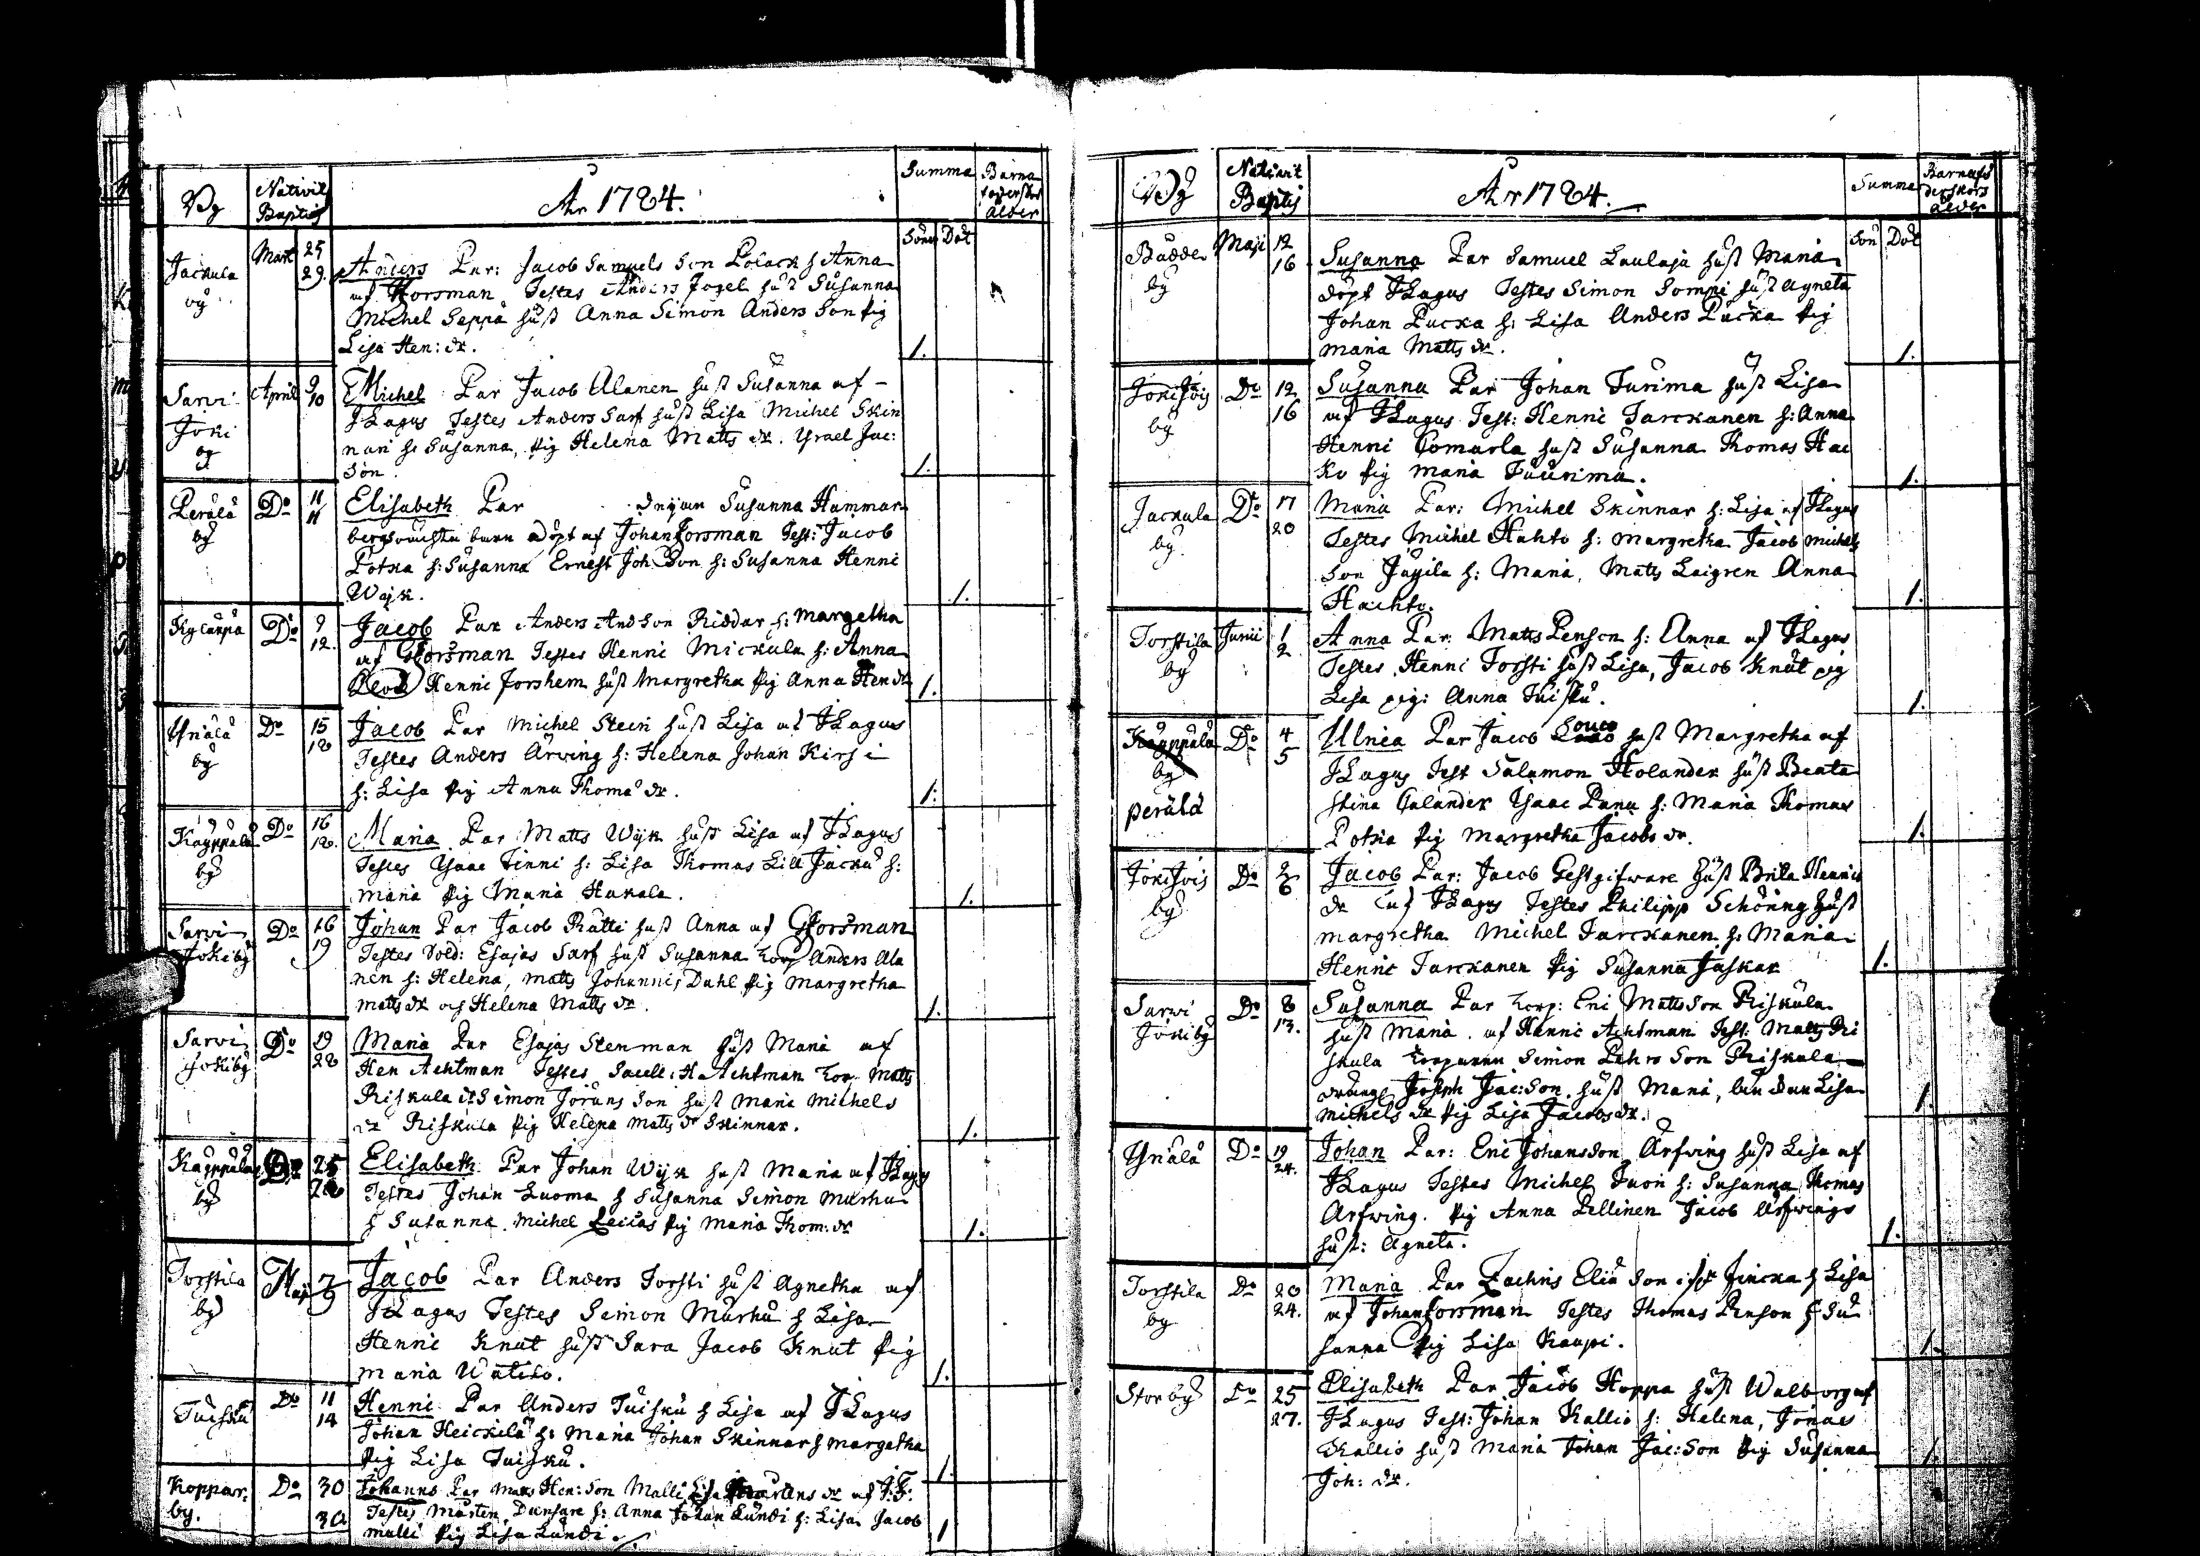 By
Nativit
Baptis
År 1784.
Summa
Barna
föderskes
ålder
Söner Döt
Jackula
by
Mart 25
29.
Anders Par: Jacob Samuels Son Polack h Anna
af Forsman Testes Anders Fogel hust Susanna
Michel Seppä hust Anna Simon Anders Son pig
Lisa Hen: dr.
1.
Sarvi
Joki
by
April 9
10
Michel Par Jacob Alanen hust Susanna af
J Lagus Testes Anders Sarf hust Lisa Michel Skin
nari h: Susanna, pig Helena Matts dr. Ysrael Jac:
Son
1.
Perälä
by
Do 11
11
Elisabeth Par Susanna Hammar
bergs barn döpt af Johan Forsman Test: Jacob
Potka h: Susanna Ernest Joh Son h: Susanna Henni
Wijk.
1.
Kylänpä
Do 9
12.
Jacob Par Anders And Son Riddar h: Margetha
af Forsman Testes Henni Mickula h: Anna
Henni Forshem hust Margretha pig Anna Hen dr
1.
Ynälä
by
Do 15
18
Jacob Par Michel Steen hust Lisa af J Lagus
Testes Anders Arving h: Helena Johan Kirsi
h: Lisa pig Anna Thoma dr.
1.
Kauppala
by
Do 16
18.
Maria Par Matts Wijk hust Lisa af J Lagus
Testes Ysaac Finni h: Lisa Thomas Lill Jacku h:
Maria pig Maria Hakala.
1.
Sarvi
Jokiby
Do 16
19
Johan Par Jacob Ratti hust Anna af Forsman
Testes Sold: Esajas Sarf hust Susanna Korp Anders Ala
nen h: Helena, Matts Johannis Dahl pig Margretha
Matts dr och Helena Matts dr.
1.
Sarvi
Jokiby
Do 19
28
Maria Par Esajas Stenman hust Maria af
Hen Achtman Testes Sacell: H. Achtman Kor. Matts
Riskula it Simon Jörans Son hust Maria Michels
dr Riskula pig Helena Matts dr Skinnar.
1.
Kauppala
by
Do 25
28
Elisabeth Par Johan Wijk hust Maria af J Lagus
Testes Johan Luoma h Susanna Simon Murhu
h Susanna Michel pig Maria Thom: dr
1.
Torstila
by
Maji 7
9
Jacob Par Anders Torsti hust Agnetha af
J Lagus Testes Simon Murhu h Lisa
Henni Knut hust Sara Jacob Knut pig
Maria Watito.
1.
Tuisku
Do 11
14
Henni Par Anders Tuisku h Lisa af J Lagus
Johan Heickilä h: Maria Johan Skinnar h Margetha
pig Lisa Tuisku.
1.
Koppar:
by.
Do 30
30
Johanns Par Mats Hen: Son Malli Lisa Mårtens dr af J: F:
Testes Mårten Dunsare h: Anna Johan Lundi h: Lisa Jacob
Malli pig Lisa Lundi.
1
By
Nativit
Baptis
År 1784.
Summa
Barnafö
derskors
ålder
Sön Döt
Budde
by
Maji 12
16
Susanna Par Samuel Laulaja hust Maria
döpt J Lagus Testes Simon Sompi hust Agneta
Johan Pucka h: Lisa Anders Pucka pig
Maria Matts dr.
1.
Jokisois
by
Do 12
16
Susanna Par Johan Turima hust Lisa
af J Lagus Test: Henni Tarckanen h: Anna
Henni Comarla hust Susanna Thomas Hac
ko pig Maria Tuurima.
1.
Jackula
by.
Do 17
20
Maria Par: Michel Skinnar h: Lisa af J Lagus
Testes Michel Hahto h: Margretha Jacob Michels
Son Jugila h: Maria, Matts Laigren Anna
Hachto.
1.
Torstila
by
Junii 1
2
Anna Par: Matts Penson h: Anna af J Lagus
Testes Henni Torsti hust Lisa, Jacob Knut pig
Lisa pig: Anna Tuisku.
1.
Kauppala
by
Perälä
Do 4
5
Ulrica Par Jacob Louco hust Margretha af
J Lagus Test Salamon Holander hust Beata
Stina Calander Ysaac Panu h: Maria Thomas
Potka pig Margretha Jacobs dr.
1.
Jokisois
by
Do 2
6
Jacob Par: Jacob Gestgifware hust Brita Hennis
dr af J Lagus Testes Philipp Schöning hust
Margretha Michel Tarckanen h: Maria
Henric Tarckanen pig Susanna Jaskar
1.
Sarvi
Jokiby
Do 8
13.
Susanna Par Korp: Eric Matts Son Riskula
hust Maria. af Henric Achtman Test: Matts Ri
skula Simon Pehrs Son Riskula
dräng Joseph Jac: Son, hust Maria, Lisa
Michels dr pig Lisa Jacobs dr.
1.
Ynälä
Do 19
24.
Johan Par: Eric Johansson Arfwing hust Lisa af
J Lagus Testes Michel Tuori h: Susanna Thomas
Arfwing. pig Anna Pellinen Jacob Arfwings
hust: Agneta.
1.
Torstila
by
Do 20
24.
Maria Par Zachris Elia Son Jincka h Lisa
af Johan Forsman Testes Thomas Penson h Su
sanna pig Lisa Kaupi.
1.
Storby
Do 25
27.
Elisabeth Par Jacob Hoppa hust Walborg af
J Lagus Test: Johan Kallio h: Helena, Jonas
Kallio hust Maria Johan Jac: Son pig Susanna
Joh: dr.
1.